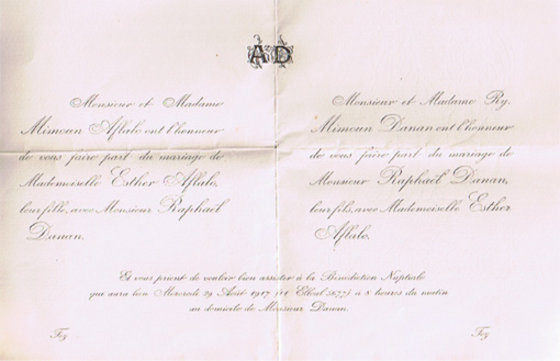 AD
Monsieur et Madame
Mimoun Aflalo ont l'honneur
de vous faire part du mariage de
Mademoiselle Esther Aflalo,
leur fille, avec Monsieur Raphaël
Danan.
Monsieur et Madame Ry.
Mimoun Danan ont l'honneur
de vous faire part du mariage de
Monsieur Raphaël Danan,
leur fils, avec Mademoiselle Esther
Aflalo.
Et vous prient de vouloir bien assister à la Bénédiction Nuptiale
qui aura lieu Mercredi 29 Août 1917 (11 Elloul 5677) à 8 heures du matin
au domicile de Monsieur Danan.
Fez
Fez